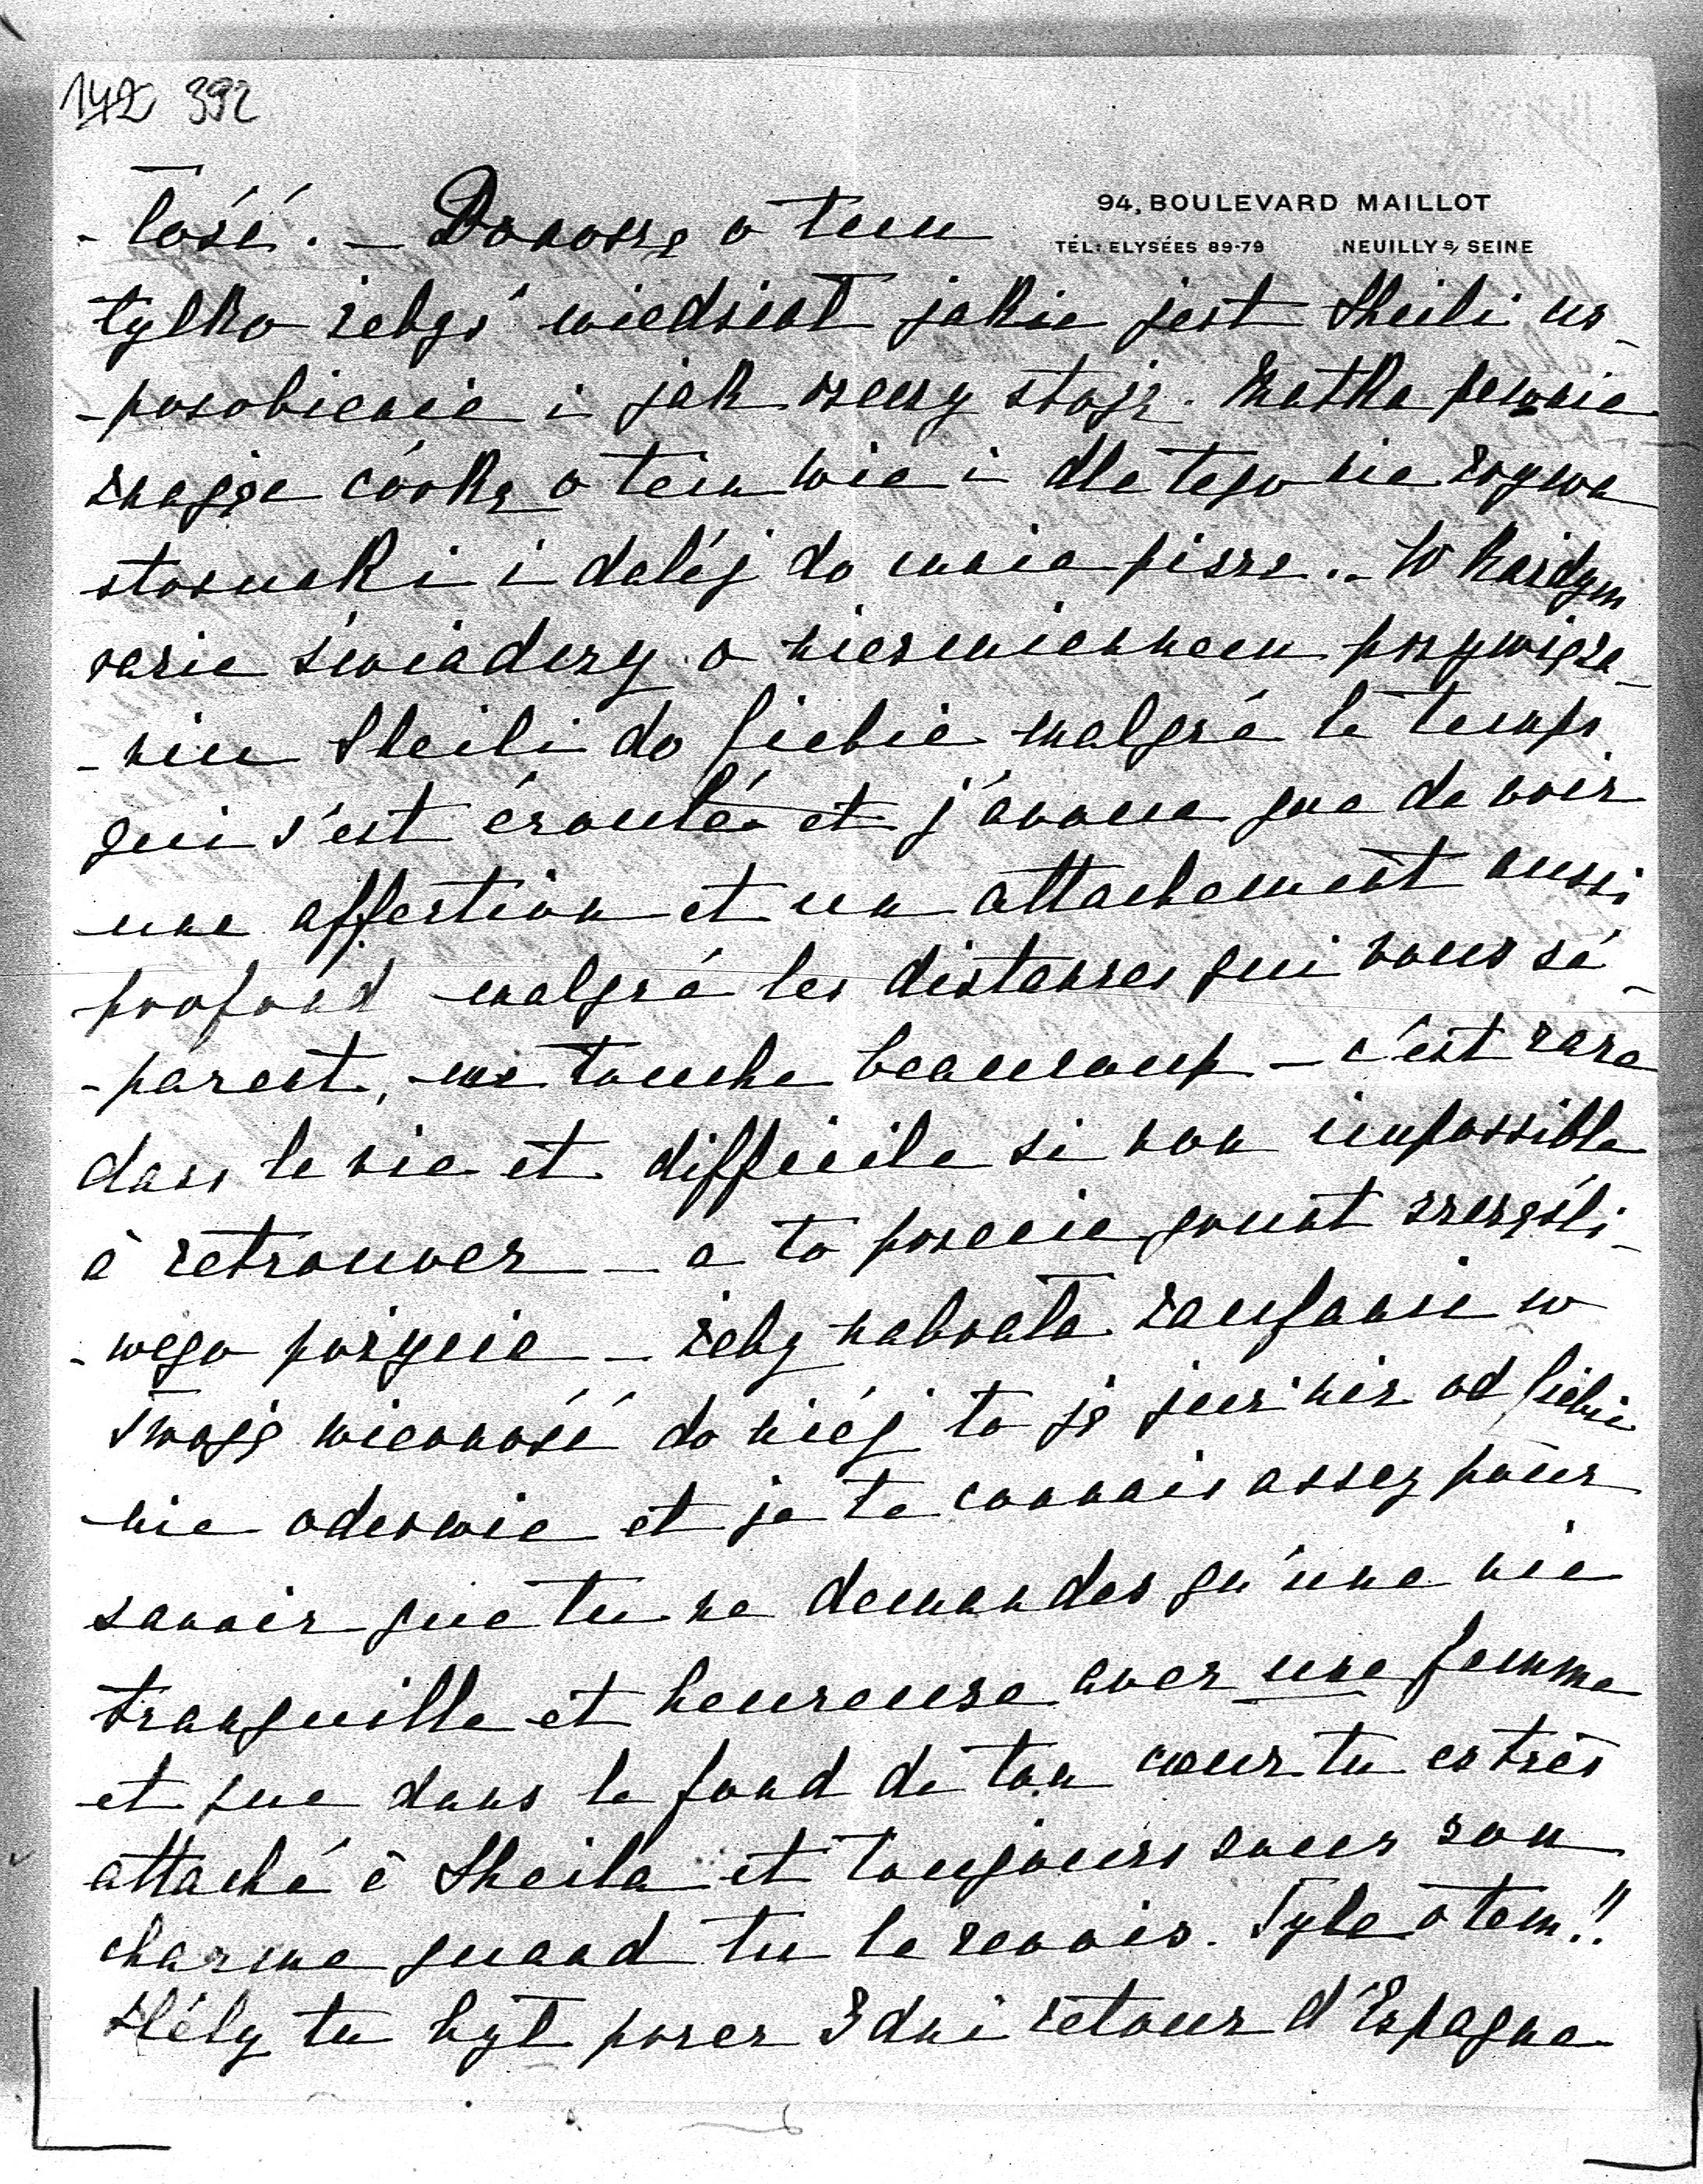 142 392
94, BOULEVARD MAILLOT
TÉL: ELYSÉES 89-79 NEUILLY S/ SEINE
-łość. — Donoszę o tem
tylko żebyś wiedział jakie jest Sheili us-
-posobienie i jak rzeczy stoją. Matka pewnie
znając córkę o tem wie i dla tego nie zrywa
stosunki i daléj do mnie pisze. - W każdym
razie świadczy o niezmiennem przywiąza-
-niu Sheili do Ciebie malgré le temps
qui s'est écoulé et j'avoue que de voir
une affection et un attachement aussi
profond malgré les distances qui vous sé-
-parent, me touche beaucoup - c'est rare
dans la vie et difficile si non impossible
à retrouver — a to przecie grunt szczęśli-
-wego pożycia — żeby nabrała zaufanie w
Twoją wierność do niéj to ją już nic od Ciebie
nie oderwie et je te connais assez pour
savoir que tu ne demandes qu'une vie
tranquille et heureuse avec une femme
et que dans le fond de ton cœur tu es très
attaché à Sheila et toujours sous son
charme quand tu la revois. Tyle o tem!!
Hély tu był przez 3 dni retour d'Espagne